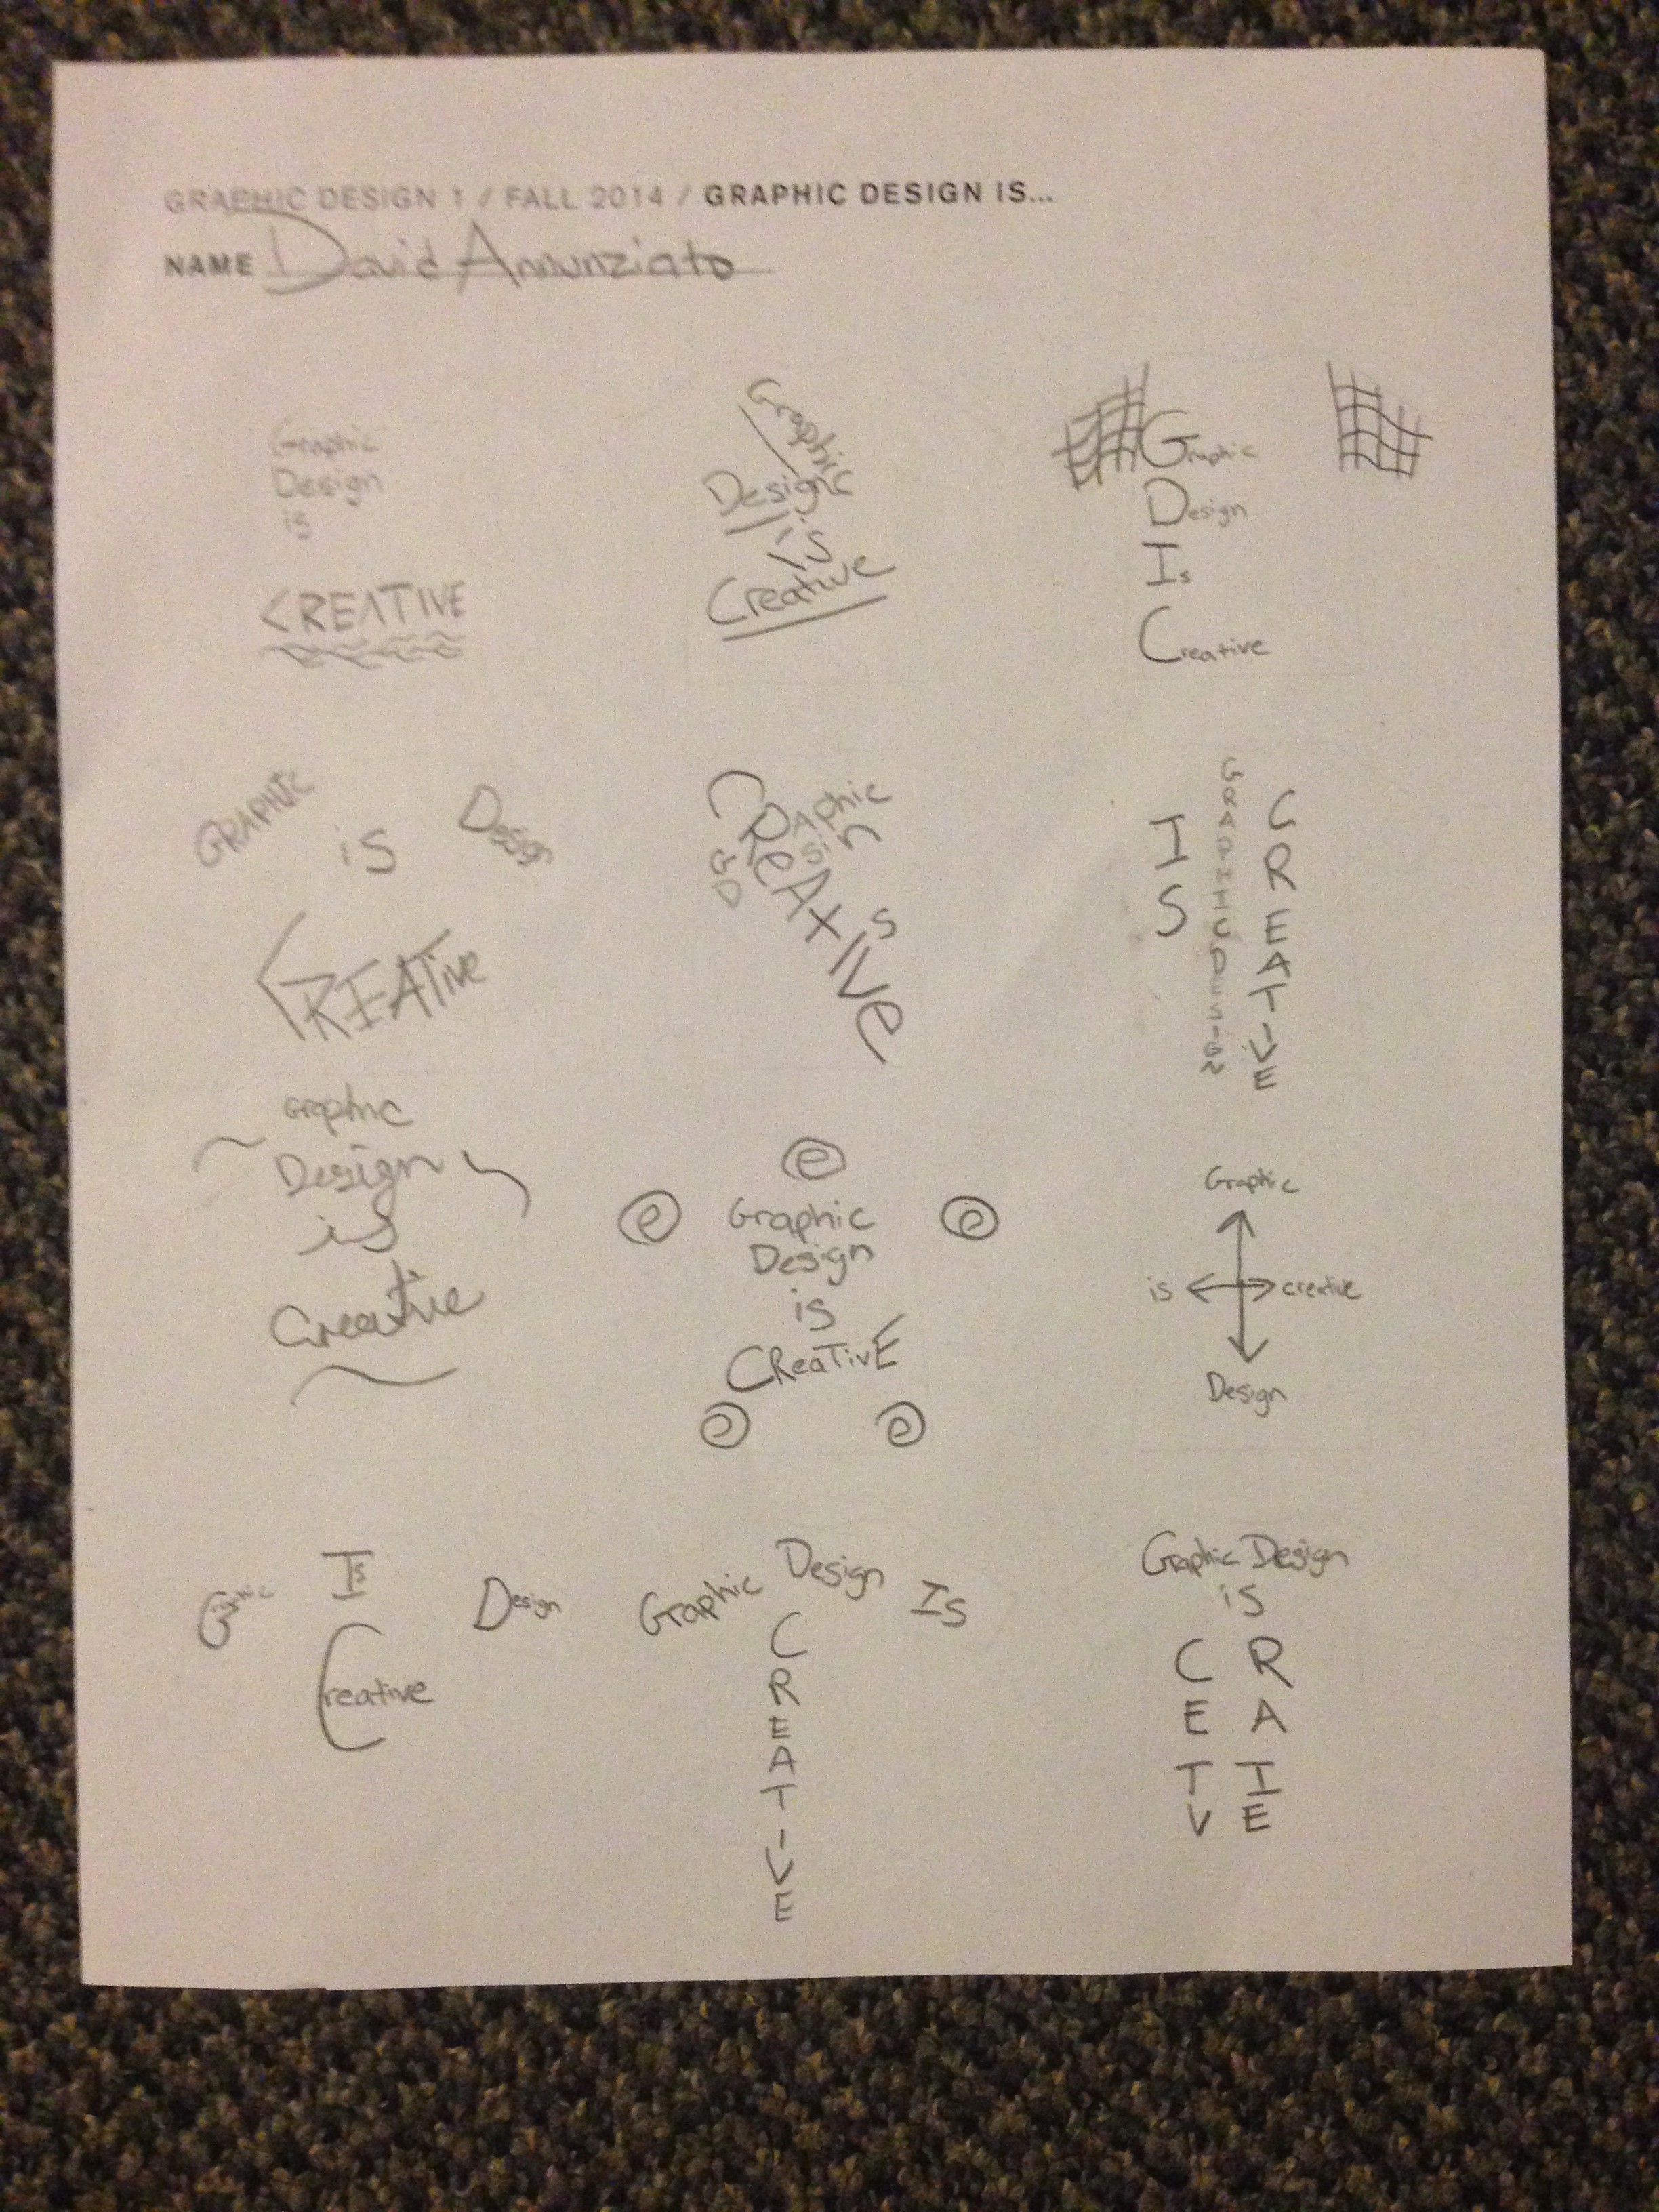 GRAPHIC DESIGN 1 / FALL 2014 / GRAPHIC DESIGN IS...
NAME David Annunziato
Graphic
Design
is
CREATIVE
Graphic
Design
is
Creative
Graphic
Design
Is
Creative
GRAPHIC
is
Design
CREATive
GRAphic
Design
is
CReAtive
IS
GRAPHIC DESIGN
CREATIVE
Graphic
Design
is
Creative
Graphic
Design
is
CReaTivE
Graphic
is
creative
Design
Graphic
Is
Design
Creative
Graphic Design Is
C
R
E
A
T
I
V
E
Graphic Design
is
C R
E A
T I
V E